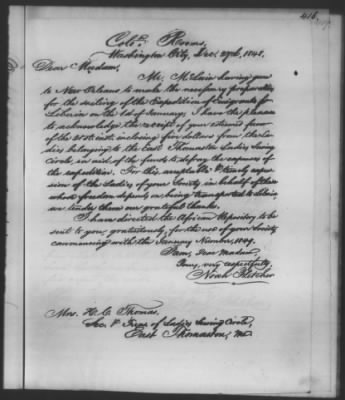 416
Col. Rooms.
Washington City, Dec. 27th, 1848.
Dear Madam,
Mr. McLain having gone
to New Orleans to make the necessary preparation
for the sailing of the Expedition of Emigrants for
Liberia on the 1st of January, I have the pleasure
to acknowledge the receipt of your esteemed favor
of the 21st inst. inclosing five dollars from the La-
dies belonging to the East Thomaston Ladies Sewing
Circle, in aid of the funds to defray the expenses of
the expedition. For this acceptable & timely expres-
sion of the Ladies of your Society in behalf of those
whose freedom depends on being transported to Liberia,
we tender them our grateful thanks.
I have directed the African Repository to be
sent to you, gratuitously, for the use of your Society
commencing with the January Number, 1849.
I am, Dear Madam,
Yours, very respectfully,
Noah Fletcher
Mrs. H. C. Thomas,
Sec. & Treas of Ladies Sewing Circle,
East Thomaston, Me.